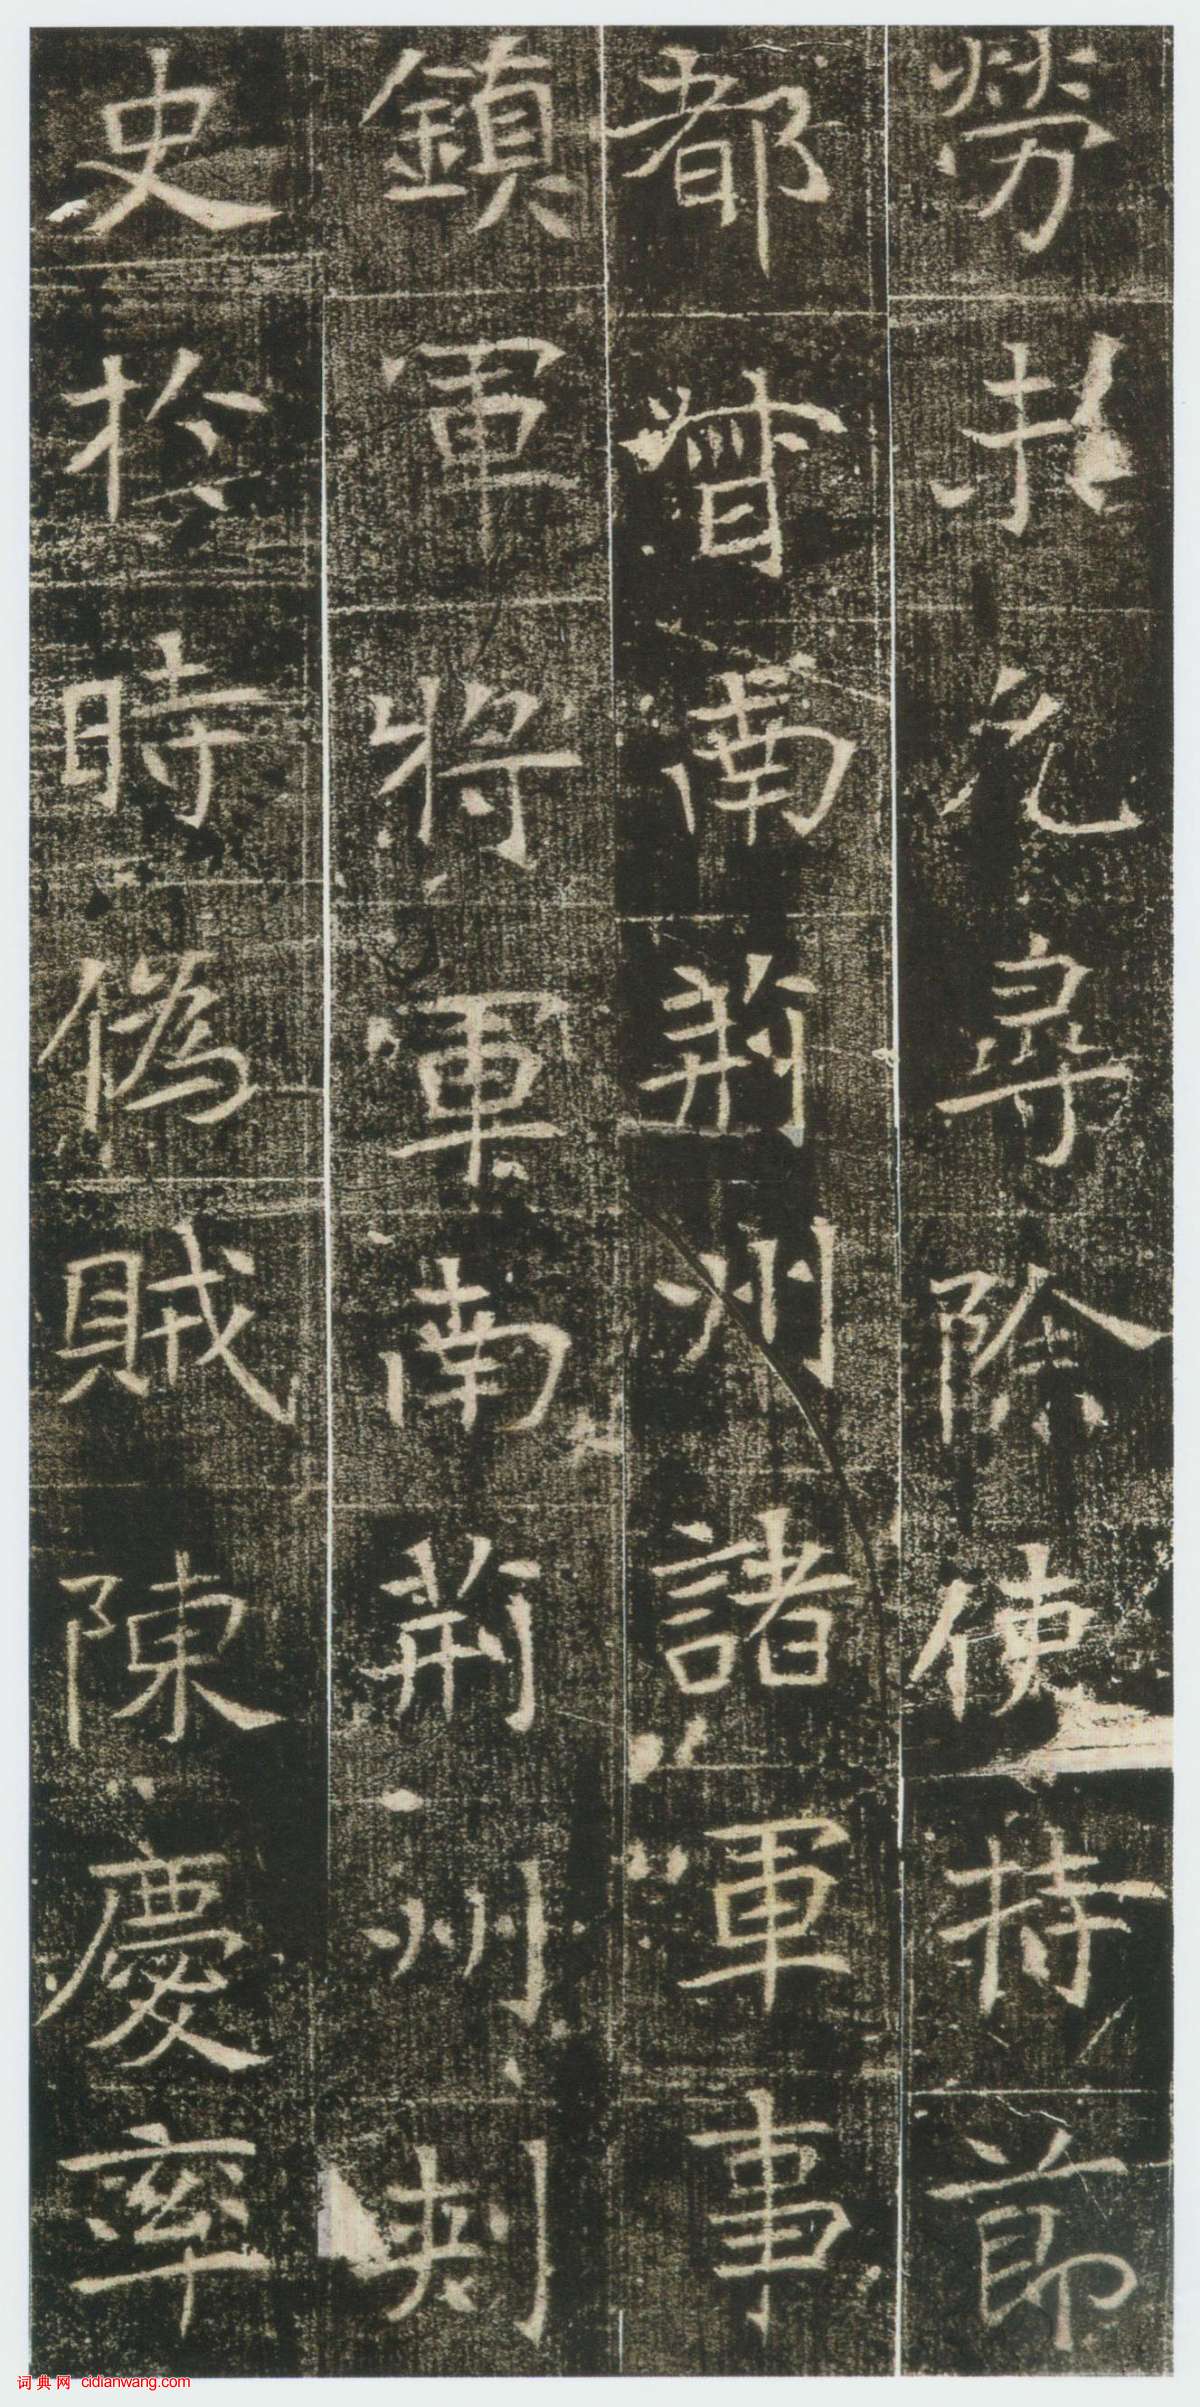 勞允尋除使持節
都督南荊州諸軍事
鎮軍將軍南荊州刺
史於時偽賊陳慶率
词典网 cidianwang.com